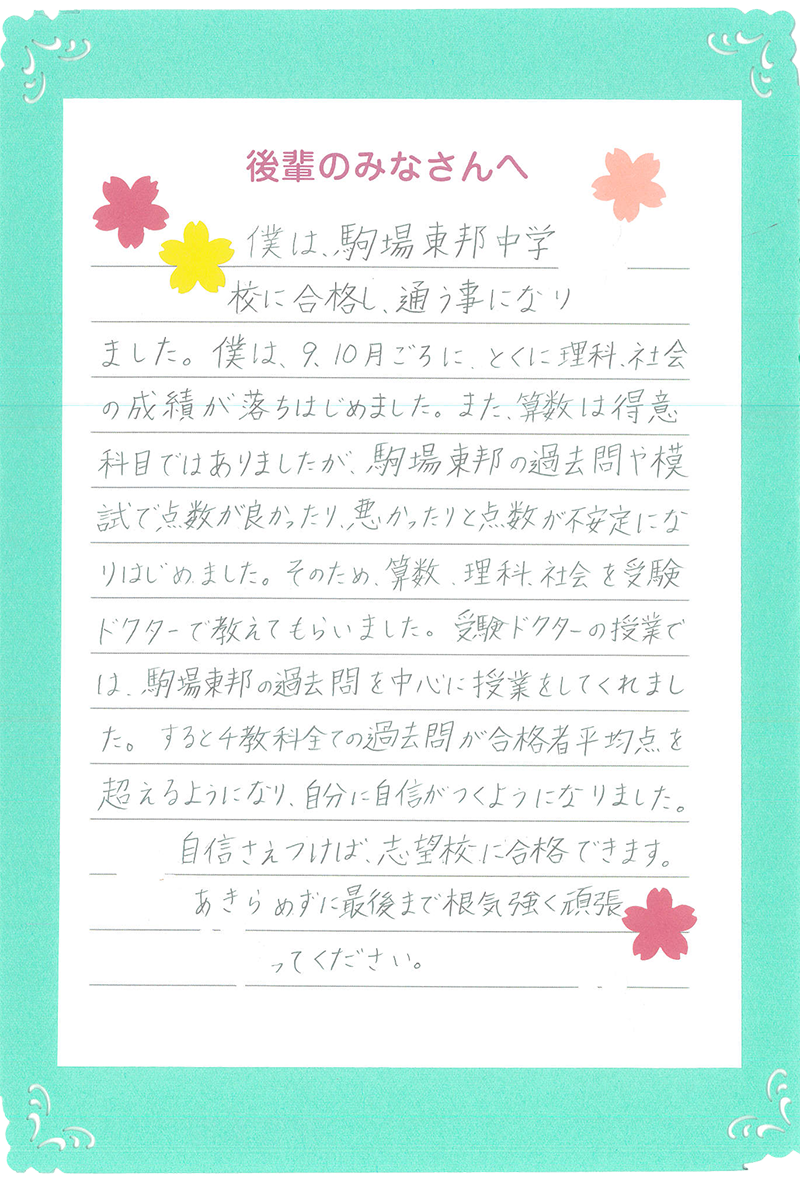 後輩のみなさんへ
僕は、駒場東邦中学
校に合格し、通う事になり
ました。僕は、9、10月ごろに、とくに理科、社会
の成績が落ちはじめました。また、算数は得意
科目ではありましたが、駒場東邦の過去問や模
試で点数が良かったり、悪かったりと点数が不安定にな
りはじめました。そのため、算数、理科、社会を受験
ドクターで教えてもらいました。受験ドクターの授業で
は、駒場東邦の過去問を中心に授業をしてくれまし
た。すると4教科全ての過去問が合格者平均点を
超えるようになり、自分に自信がつくようになりました。
自信さえつけば、志望校に合格できます。
あきらめずに最後まで根気強く頑張
ってください。